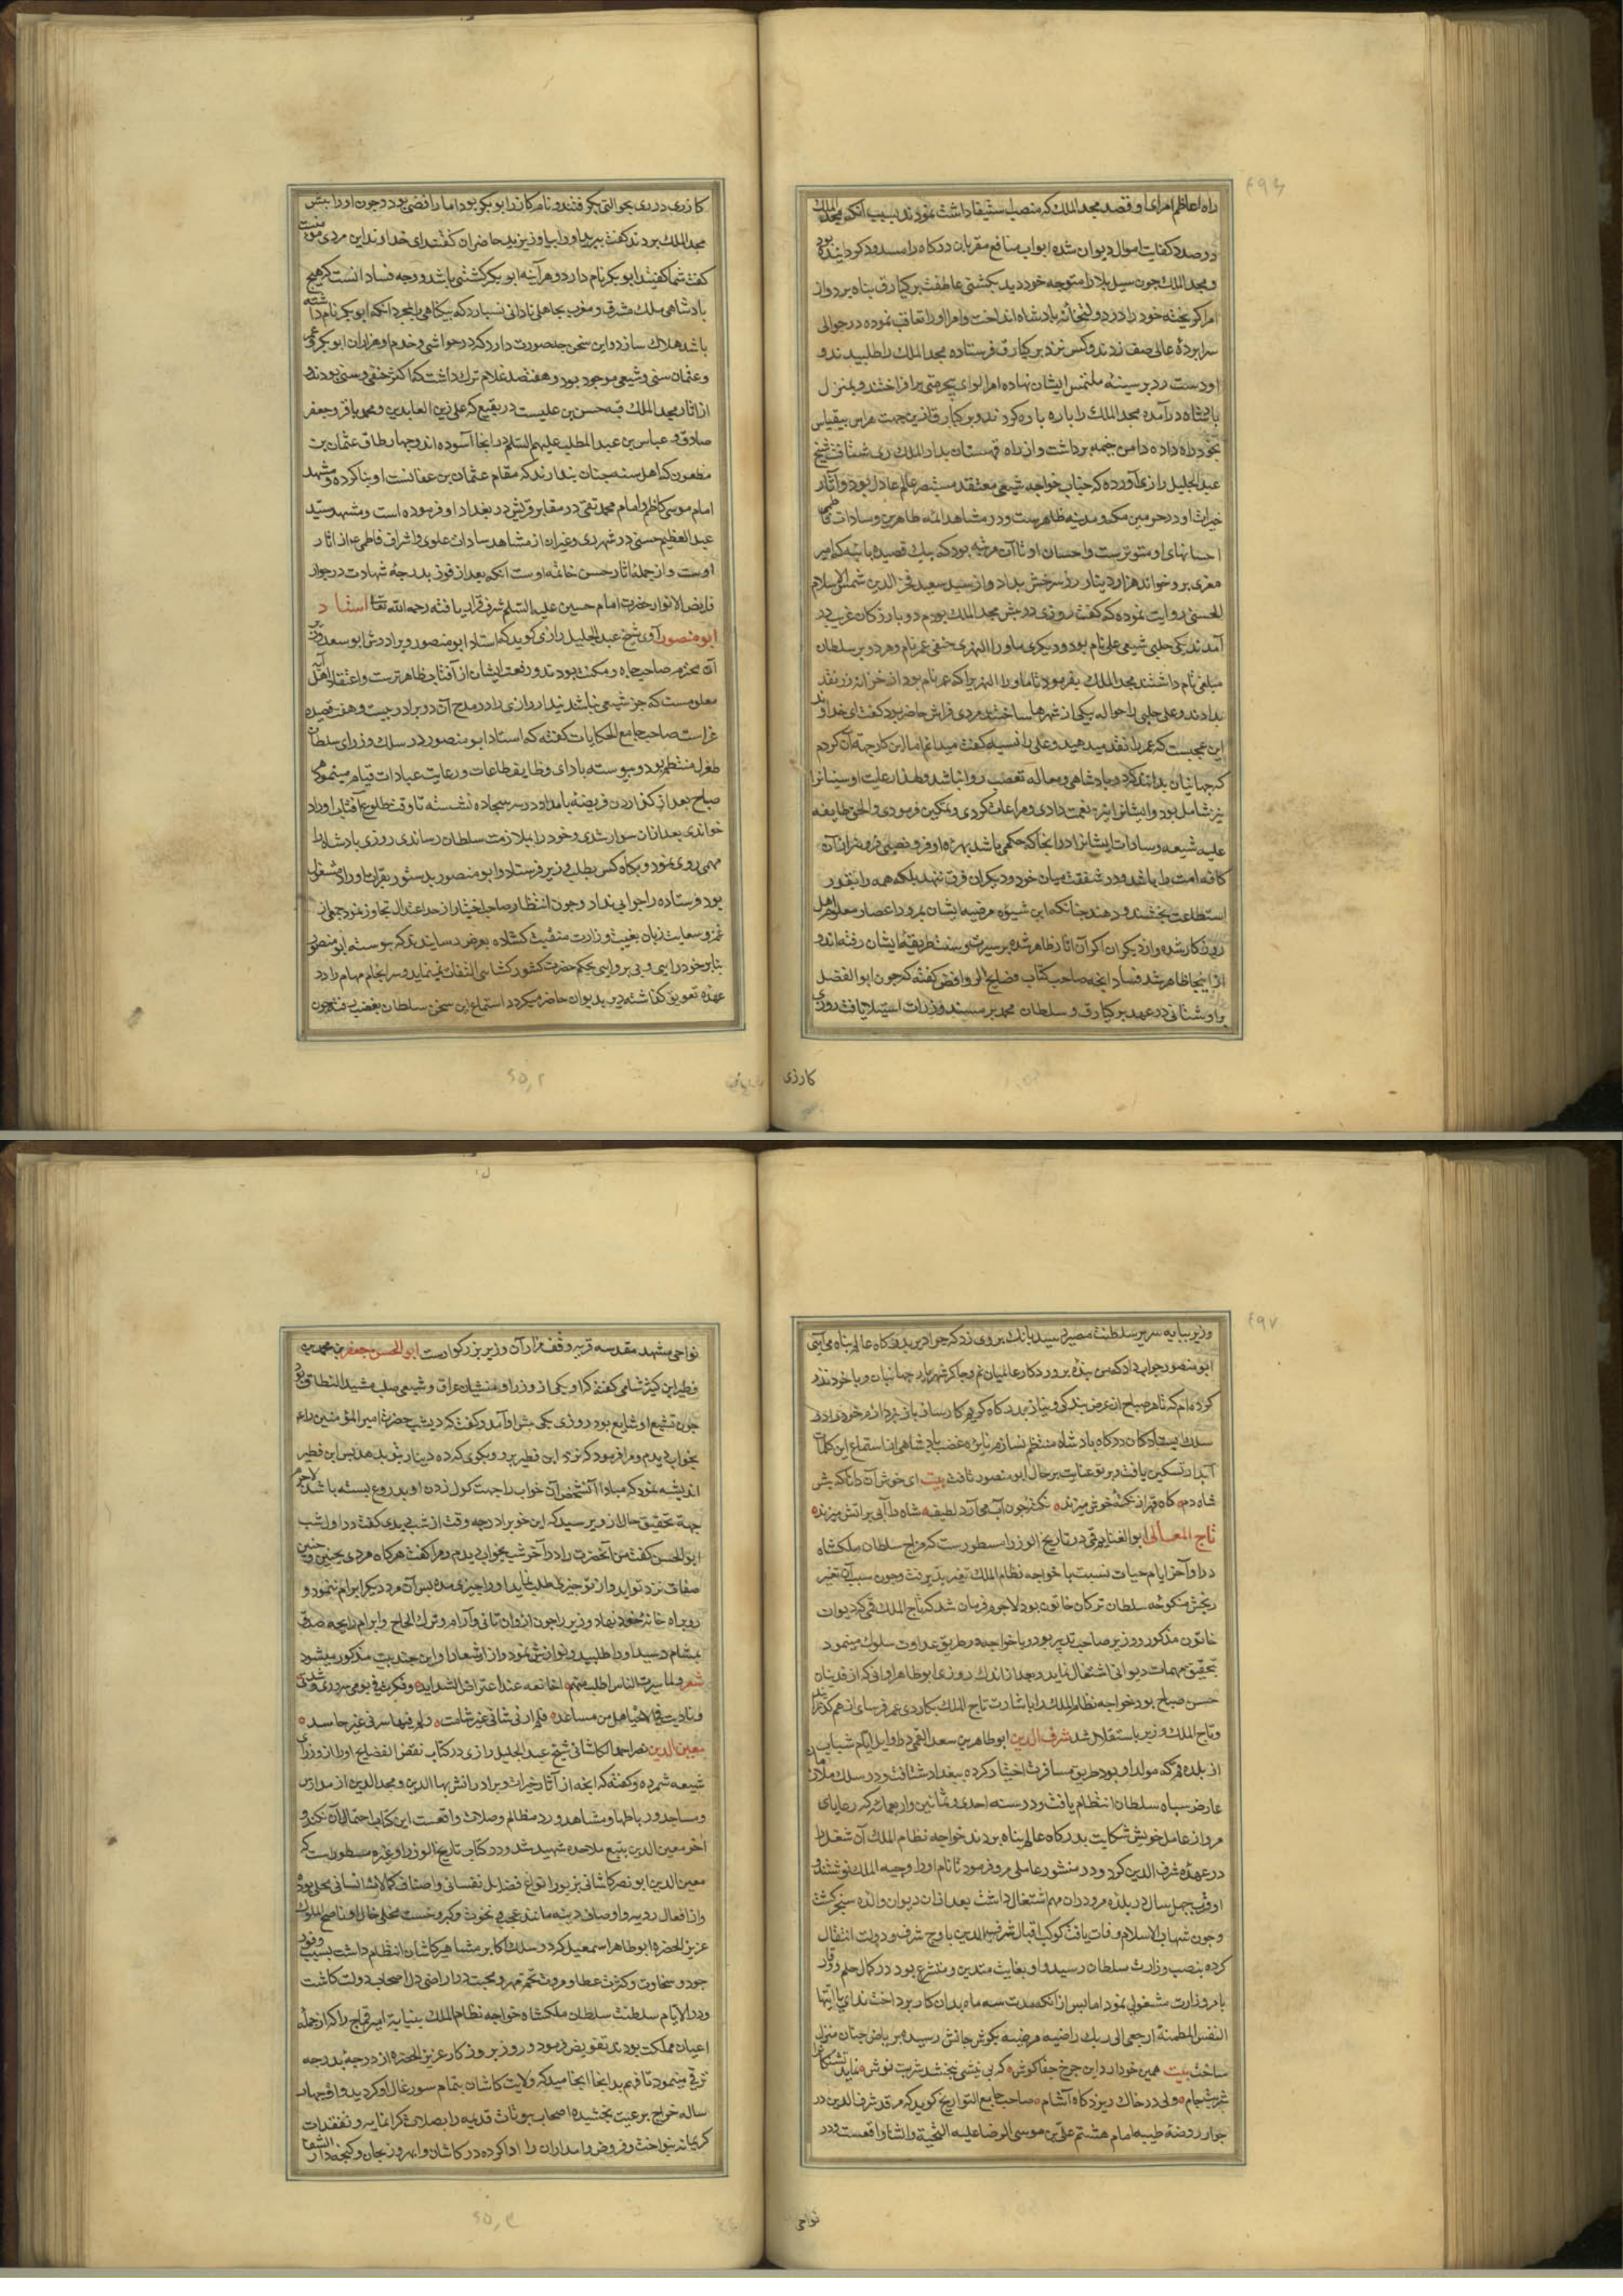 راه اعاظم امرای او قصد مجد الملک که منصب استیفا داشت نمودند بسبب آنکه مجد الملک
در صدد کفایت اموال دیوان شده ابواب منافع مقربان درکاه را مسدود کردانیده بود
و مجد الملک چون سیل بلا را متوجه خود دید بکشتی عاطفت برکیارق پناه برد و از
امرا کریخته خود را در دولتخانه پادشاه انداخت و امرا او را تعاقب نموده در حوالی
سرابرده عالی صف زدند و کس نزد برکیارق فرستاده مجد الملک را طلبیدند و
او دست رد بر سینه ملتمس ایشان نهاده امرا لوای بیحرمتی برافراختند و بمنزل
پادشاه درآمده مجد الملک را پاره پاره کردند و برکیارق ازین جهت هراس بیقیاس
بخود راه داده دامن خیمه برداشت و از راه قهستان بدار الملک ری شتافت شیخ
عبد الجلیل رازی آورده که جناب خواجه شیعی معتقد مستبصر عالم عادل بود و آثار
خیرات او در حرمین مکه و مدینه ظاهرست و در مشاهد ائمه طاهرین و سادات فاطمی
احسانهای او متواترست و احسان او تا آن مرتبه بود که بیک قصیده بائیه که امیر
مغزی برو خواند هزار دینار زر سرخش بداد و از سید سعید فخر الدین شمس الاسلام
الحسنی روایت نموده که گفت روزی در پیش مجد الملک بودم دو بازرکان غریب در
آمدند یکی حلبی شیعی علی نام بود و دیکری ماورا النهری حنفی عمر نام و هر دو بر سلطان
مبلغی وام داشتند مجد الملک بفرمود تا ماورا النهری را که عمر نام بود از خزانه زر نقد
بدادند و علی حلبی را حواله بیکی از شهرها ساختند مردی فراش حاضر بود کفت ای خداوند
این عجبست که عمر را نقد میدهید و علی را نسیه کفت میدانم اما این کار جهت آن کردم
که جهانیان بدانند که در پادشاهی و معامله تعصب روا نباشد و لطف رعایت او سنیانرا
نیز شامل بود و ایشانرا نیز نعمت دادی و مراعات کردی و تمکین فرمودی و الحق طایفه
علیه شیعه و سادات ایشانرا در انجا که حکمی باشد بهره اوفر و نصیبی
کافه امت را باشد و در شفقت میان خود و دیکران فرق ننهند بلکه همه را بقدر
استطاعت بخشند و دهند چنانکه این شیوه مرضیه ایشان بمرور اعصار معلوم اهل
روزکار شده و از دیکران اکر آن اثار ظاهر شده بر سیرت و سنت طریقه ایشان رفته اند و
ازاینجا ظاهر شد فساد انچه صاحب کتاب فضایح الروافض کفته که چون ابو الفضل
براوستانی در عهد برکیارق و سلطان محمد بر مسند وزرات استیلا یافت روزی
کارزی
کازری در ری بحوالتی بکرفتند و نام کازر ابو بکر بود اما رافضی بود و چون او را پیش
مجد الملک بردند کفت ببرید او را بیاویزید حاضران کفتند ای خداوند این مردی مومنست
کفت شما کفتید ابو بکر نام دارد و هرآینه ابو بکر کشتنی باشد و وجه فساد انست که هیچ
پادشاهی ملک مشرق و مغرب بجاهلی نادانی نسپارد که بیکناهی را بمجرد انکه ابو بکر نام داشته
باشد هلاک سازد و این سخن چه صورت دارد که در حواشی و خدم او هزاران ابو بکر و عمر
و عثمان سنی و شیعی موجود بود و هفتصد غلام ترک داشت که اکثر حنفی و سنی بودند و
از اثار مجد الملک قبه حسن بن علیست در بقیع که علی زین العابدین و محمد باقر و جعفر
صادق و عباس بن عبد المطلب علیهم السلام در انجا آسوده اند و چهار طاق عثمان بن
مظعون که اهل سنه چنان پندارند که مقام عثمان بن عفانست او بنا کرده و مشهد
امام موسی کاظم و امام محمد تقی در مقابر قریش در بغداد او فرموده است و مشهد سید
عبد العظیم حسنی در شهر ری و غیر آن از مشاهد سادات علوی و اشراف فاطمی ع از اثار
اوست و از جمله اثار حسن خاتمه اوست انکه بعد از فوز بدرجه شهادت در جوار
فایض الانوار حضرت امام حسین علیه السلم شرف قرار یافته رحمه الله تعا استاد
ابو منصور آوی شیخ عبد الجلیل رازی کوید که استاد ابو منصور و برادرش ابو سعد
آن محترم صاحب جاه و مکنت بودند و رفعت ایشان از آفتاب ظاهرترست و اعتقاد اهل آبه
معلومست که جز شیعی نباشد بندار رازی را در مدح آن دو برادر بیست و هفت قصیده
غراست صاحب جامع الحکایات کفته که استاد ابو منصور در سلک وزرای سلطان
طغرل منتظم بود و پیوسته بادای وظایف طاعات و رعایت عبادات قیام مینمود
صباح بعد از کزاردن فریضه بامداد در سر سجاده نشسته تا وقت طلوع آفتاب اوراد
خواندی بعد ازان سوار شدی و خود را بملازمت سلطان رساندی روزی پادشاه را
مهمی روی نمود و بکاه کس بطلب وزیر فرستاد و ابو منصور بدستور بقرات اوراد مشغول
بود فرستاده را جوابی نداد و چون انتظار صاحب اختیار از حد اعتدال تجاوز نمود جمعی از
غمز و سعایت زبان بغیبت وزارت منقبت کشاده بعرض رسانیدند که پیوسته ابو منصور
بنابر خود رایی و بی پروایی بحکم حضرت کشور کشا التفات نمینماید و سرانجام مهام را در
عهده تعویق کذاشته دیر بدیوان حاضر میکردد استماع این سخن سلطان بغضب رفت چون
وزیر بپایه سریر سلطنت مصیر رسید بانک بر وی زد که چرا دیر بدرکاه عالم پناه می آیی
ابو منصور جواب داد که من بنده پروردکار عالمیان نم و چاکر شهریار جهانیان و با خود نذر
کرده ام که تا هر صباح از عرض بندکی و نیاز بدرکاه کریم کارساز باز نپردازم خود را در
سلک ایستادکان درکاه پادشاه منتظم نسازم نایره غضب پادشاهی از استماع این کلمات
آبدار تسکین یافت و پرتو عنایت بر حال ابو منصور تافت بیت ای خوش آن دانا که پیش
شاه دم کاه قهر از نکته خوش میزند نکته چون آب می آرد لطیف شاه را آبی بر آتش میزند
تاج المعالی ابو الغنایم قمی در تاریخ الوزرا مسطورست که مزاج سلطان ملکشاه
در اواخر ایام حیات نسبت با خواجه نظام الملک تغیر پذیرفت و چون سبب آن تغیر
رنجش منکوحه سلطان ترکان خاتون بود لاجرم فرمان شد که تاج الملک قمی که دیوان
خاتون مذکور و وزیر صاحب تدبیر بود و با خواجه در طریق عداوت سلوک مینمود
بتحقیق مهمات دیوانی اشتغال نماید و بعد از اندک روزی ابو طاهر اوانی که از فدیان
حسن صباح بود خواجه نظام الملک را باشارت تاج الملک بکاردی عمر فرسای از هم کذرانید
و تاج الملک وزیر باستقلال شد شرف الدین ابو طاهر بن سعد القمی در اوایل ایام شباب
از بلده قم که مولد او بود طریق مسافرت اختیار کرده ببغداد شتافت و در سلک ملازمان
عارض سپاه سلطان انتظام یافت و در سنه احدی و ثمانین و اربعمائه که رعایای
مرو از عامل خویش شکایت بدرکاه عالم پناه بردند خواجه نظام الملک آن شغل را
در عهده شرف الدین کرد و در منشور عاملی مرو فرمود تا نام او را وجیه الملک نوشتند و
او قرب چهل سال در بلده مرو دران مهم اشتغال داشت بعد ازان دیوان والده سنجر کشت
و چون شهاب الاسلام وفات یافت کوکب اقبال شرف الدین باوج شرف و دولت انتقال
کرده بمنصب وزارت سلطان رسید و او بغایت متدین و متشرع بود در کمال حلم و وقار
بامر وزارت مشغولی نمود اما پس از انکه مدت سه ماه بدان کار پرداخت ندای یا ایتها
النفس المطمئنة ارجعی الی ربک راضیه مرضیه بکوش جانش رسیده بر ریاض جنان منزل
ساخت بیت همین خو دارد این چرخ جفاکوش که بی نیشی نبخشد شربت نوش نماید تشنکانرا
شربت جام ولی در خاک ریزد کاه آشام صاحب جامع التواریخ کوید که مرقد شرف الدین در
جوار روضه طیبه امام هشتم علی بن موسی الرضا علیه التحیة و الثنا واقعست و در
نواحی
نواحی مشهد مقدسه قریه وقف مزار آن وزیر بزرکوارست ابو الحسن جعفر بن محمد بن
فطیر ابن کثیر شامی کفته که او یکی از وزرا و منشیان عراق و شیعی صلب مشید النطاق بود
چون تشیع او شایع بود روزی یکی پیش او آمد و کفت که دیشب حضرت امیر المؤمنین را ع
بخواب دیدم و مرا فرمود که نزد ابن فطیر برو و بکوی که ده دینار بتو بدهد پس ابن فطیر
اندیشه نمود که مبادا آن شخص آن خواب را جهت کول زدن او بدروغ بسته باشد لاجرم
جهة تحقیق حال از وپرسید که این خوابرا در چه وقت از شب دیدی کفت در اول شب
ابو الحسن کفت من آنحضرت را در آخر شب بخواب دیدم و مرا کفت هرکاه مردی بچنین و چنین
صفات نزد تو آید و از تو چیزی طلب نماید او را چیزی مده پس آن مرد دیکر ابرام ننمود و
رو براه خانه خود نهاد وزیر را چون ازو ان تانی و آرام و ترک الحاح و ابرام رایحه صدق
بمشام رسید او را طلبید و نوازش نمود و از اشعار او این چند بیت مذکور میشود
شعر و لما سبرت الناس اطلب منهم اخا ثقه عند اعتراض الشداید و فکرت فی یومی سروری و شدتی
و نادیت فی الاحیا هل من مساعد فلم ار فی ما سائنی غیر شامت و لم ار فیما سرنی غیر حاسد
معین الدین نصر احمد الکاشانی شیخ عبد الجلیل رازی در کتاب نقض الفضایح او را از وزرای
شیعه شمرده و کفته که انچه از آثار خیرات و برادرانش بها الدین و مجد الدین از مدارس
و مساجد و رباطها و مشاهد و رد مظالم و صلات واقعست این کتاب احتمال آن نکند و
آخر معین الدین بتیغ ملاحده شهید شد و در کتاب تاریخ الوزرا و غیره مسطورست که
معین الدین ابو نصر کاشانی بزیور انواع فضایل نفسانی و اصناف کمالات انسانی محلی بود
و از افعال ردیه و اوصاف دنیه مانند عجب و نخوت و کبر و خست مخلی خال او ناصح الملوک
عزیز الحضره ابو طاهر اسمعیل که در سلک اکابر مشاهیر کاشان انتظام داشت بسبب وفور
جود و سخاوت و کثرت عطا و مروت تخم مهر و محبت در اراضی دل اصحاب دولت کاشت
و در ایام سلطنت سلطان ملکشاه و خواجه نظام الملک بنیابه امیر قماج را که از جمله
اعیان مملکت بود بدو تفویض فرمود و روز بروز کار عزیز الحضره از درجه بدرجه
ترقی مینمود تا مهم بدانجا انجامید که ولایت کاشان بتمام سورغال او کردید و او چهار
ساله خراج برعیت بخشیده اصحاب بیوتات قدیمه را بصلات کرانمایه و تفقدات
کریمانه بنواخت و قروض وامداران را ادا کرده در کاشان و ابهر و زنجان و کنجه دار الشفا